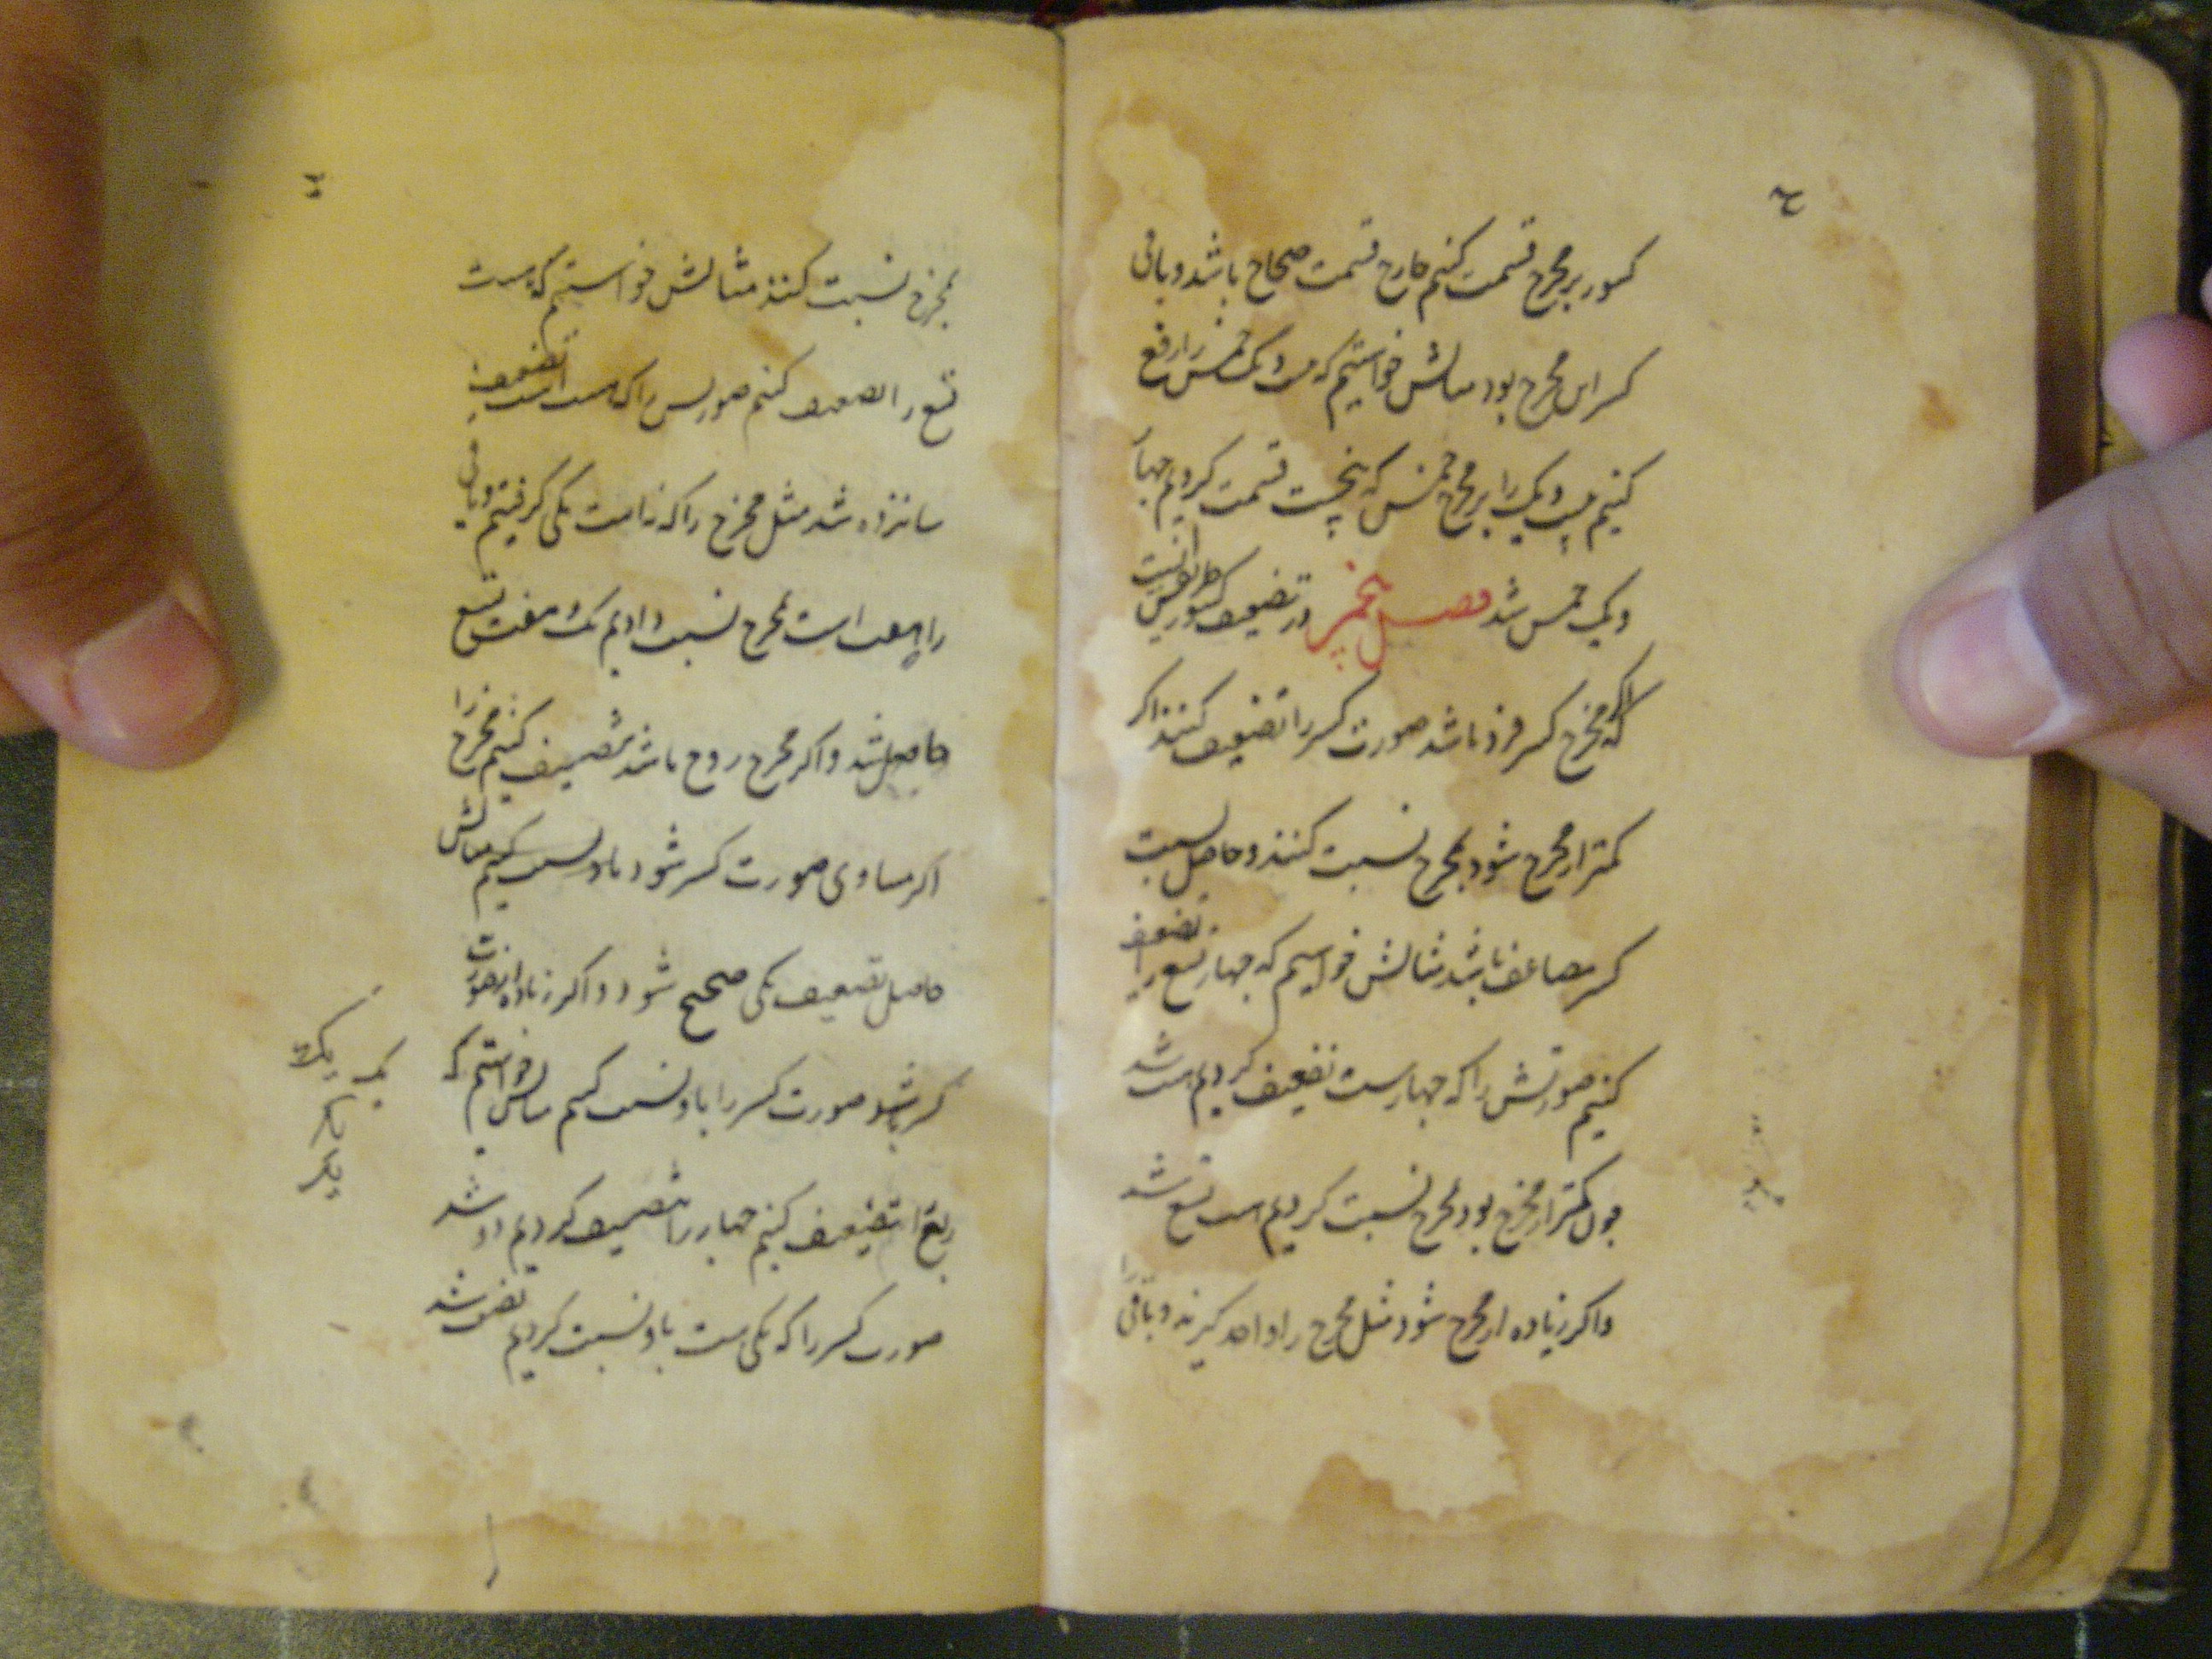 کسور بر مخرج قسمت کنیم خارج قسمت صحاح باشد و باقی
کسر از آن مخرج بود مثالش خواستیم که بیست و یک خمس را رفع
کنیم بیست و یک را بر مخرج خمس که پنجست قسمت کردیم چهار
و یک خمس شد فصل پنجم در تضعیف کسور طریقش آنست
که اگر مخرج کسر فرد باشد صورت کسر را تضعیف کنند اگر
کمتر از مخرج شود بمخرج نسبت کنند و حاصل نسبت
کسر مضاعف باشد مثالش خواستیم که چهار تسع را تضعیف
کنیم صورتش را که چهارست تضعیف کردیم هشت شد
چون کمتر از مخرج بود بمخرج نسبت کردیم هشت تسع شد
و اگر زیاده از مخرج شود مثل مخرج را واحد گیرند و باقی را
بمخرج نسبت کنند مثالش خواستیم که هشت
تسع را تضعیف کنیم صورتش را که هشت است تضعیف
شانزده شد مثل مخرج را که نه است یکی گرفتیم و باقی
را که هفت است بمخرج نسبت دادیم یک و هفت تسع
حاصل شد و اگر مخرج زوج باشد تنصیف کنیم مخرج را
اگر مساوی صورت کسر شود باو نسبت کنیم مثالش
حاصل تضعیف یکی صحیح شود و اگر زیاده از صورت
کسر شود صورت کسر را باو نسبت کنیم مثالش خواستیم که
ربع را تضعیف کنیم چهار را تنصیف کردیم دو شد
صورت کسر را که یکی ست باو نسبت کردیم نصف شد